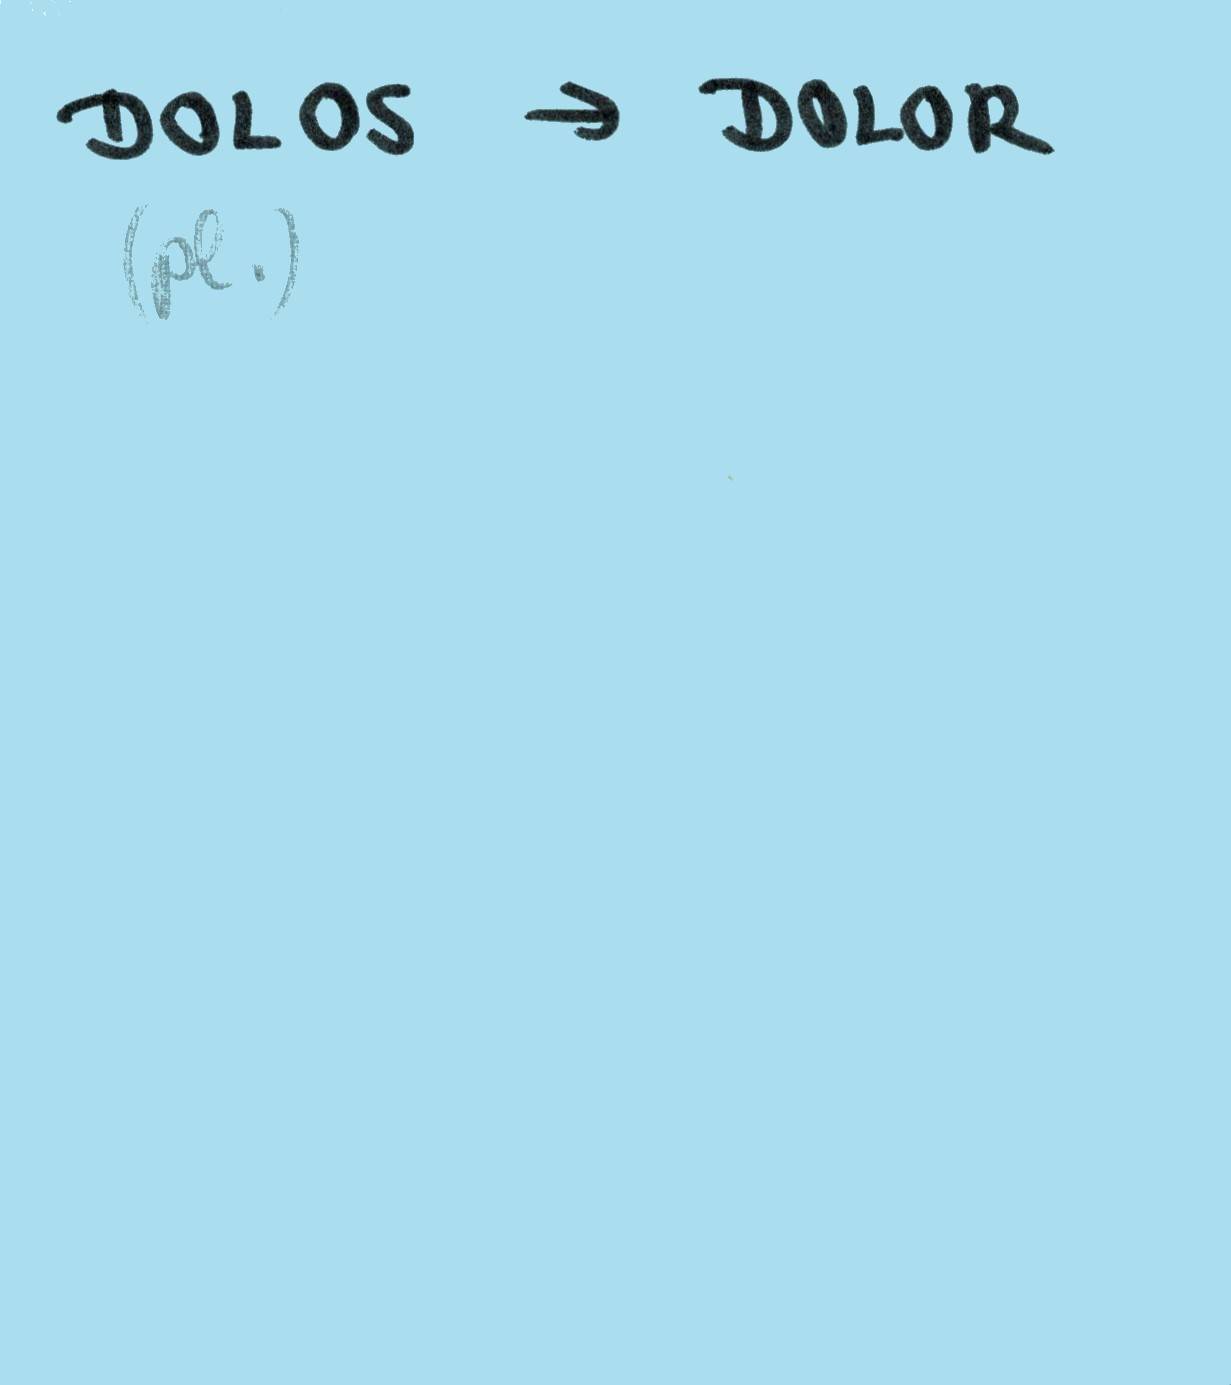 DOLOS → DOLOR
(pl.)